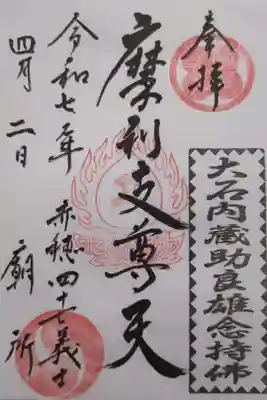 奉拝
大石内蔵助良雄念持佛
摩利支尊天
赤穂四十七義士廟所
令和七年
四月二日